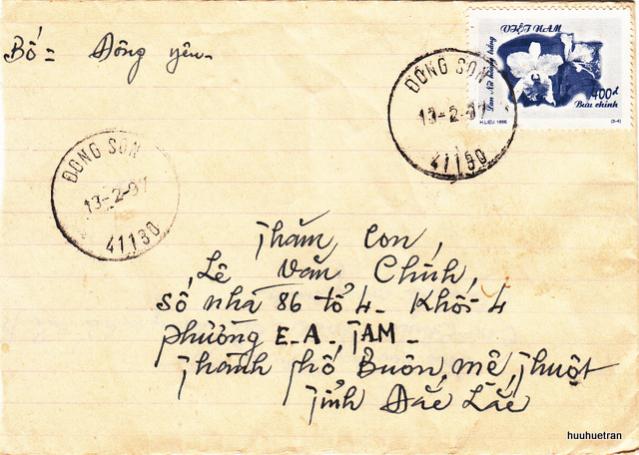 Bố = Đông yên.
VIỆT NAM
Lan Nữ hoàng trắng
400đ
Bưu chính
H.LIEU 1996
(3-4)
ĐÔNG SƠN
13-2-97
41130
ĐÔNG SƠN
13-2-97
41130
Thăm, con,
Lê Văn Chính,
Số nhà 86 tổ 4 - Khối 4
phường E.A. TAM -
Thành phố Buôn, mê, Thuột
Tỉnh Đắc Lắc
huuhuetran